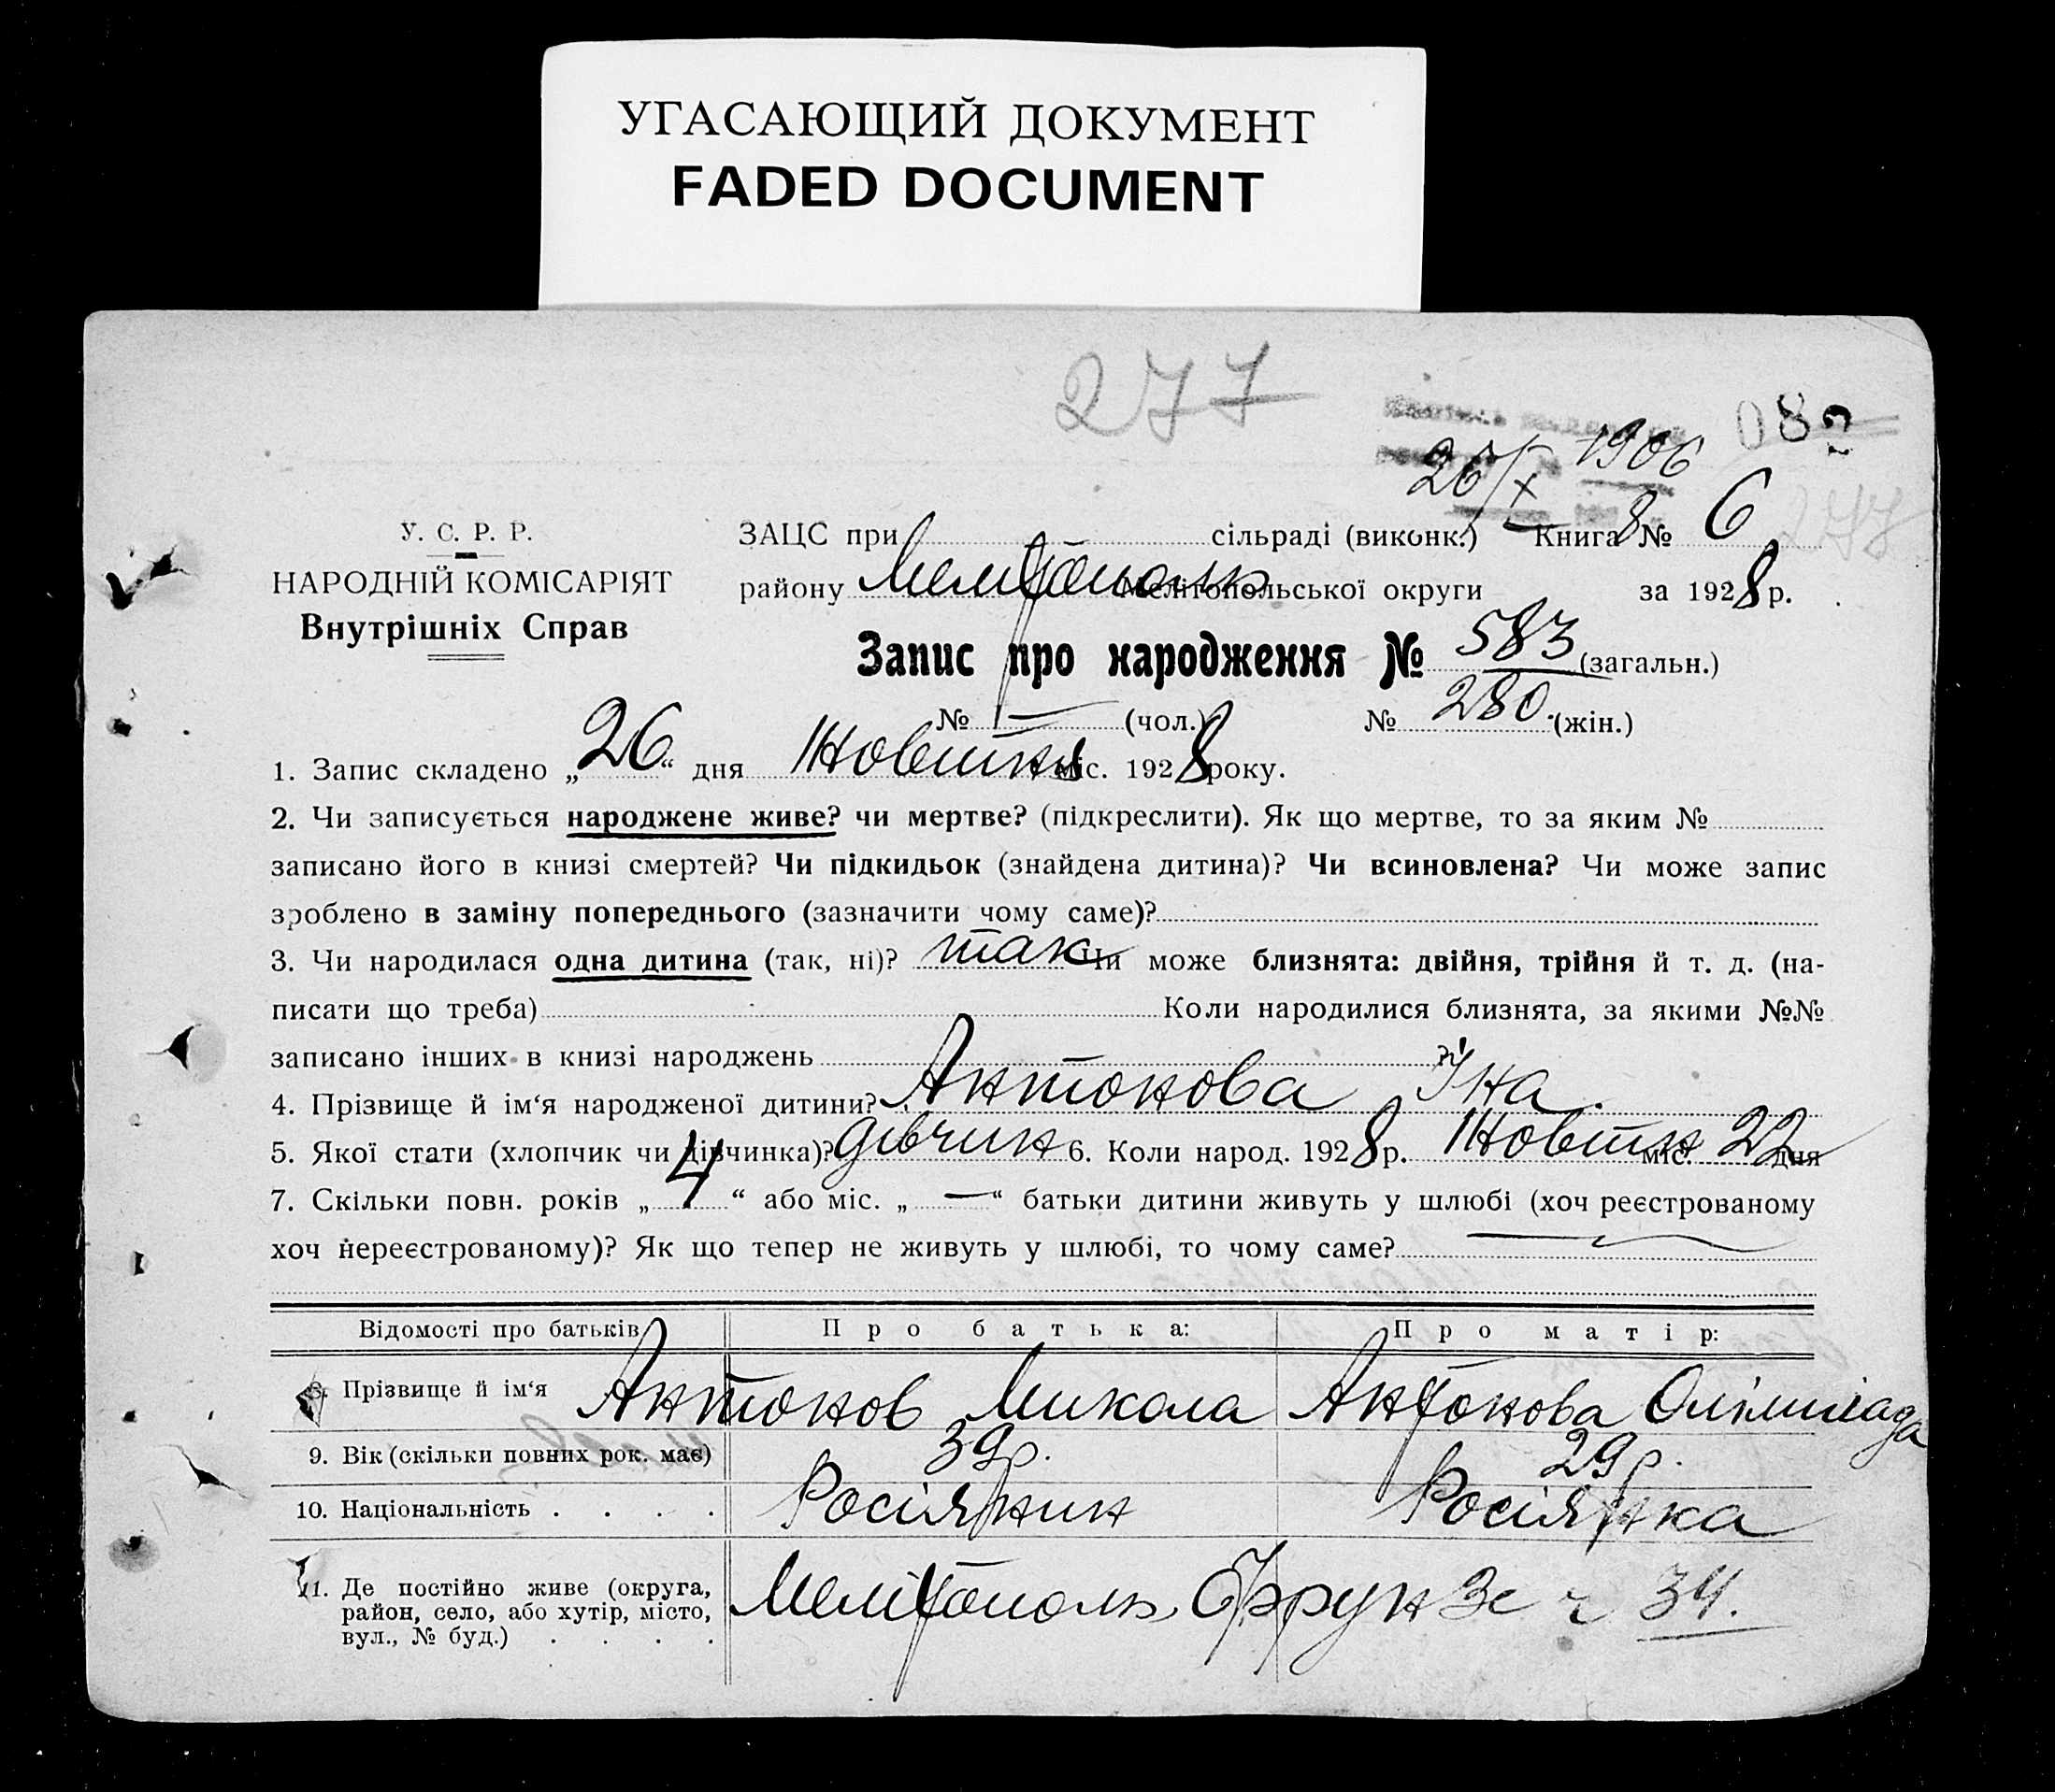 УГАСАЮЩИЙ ДОКУМЕНТ
FADED DOCUMENT
277
082
26/X 1906
8
277
У. С. Р. Р.
НАРОДНІЙ КОМІСАРІЯТ
Внутрішніх Справ
ЗАЦС при сільраді (виконк.) Книга № 6
району Мелітополь Мелітопольської округи за 1928 р.
Запис про народження № 583 (загальн.)
№ — (чол.) № 280. (жін.)
1. Запис складено „26“ дня Жовтня міс. 1928 року.
2. Чи записується народжене живе? чи мертве? (підкреслити). Як що мертве, то за яким №
записано його в книзі смертей? Чи підкидьок (знайдена дитина)? Чи всиновлена? Чи може запис
зроблено в заміну попереднього (зазначити чому саме)?
3. Чи народилася одна дитина (так, ні)? так Чи може близнята: двійня, трійня й т. д. (на-
писати що треба) Коли народилися близнята, за якими №№
записано інших в книзі народжень
4. Прізвище й ім‘я народженої дитини? Антонова Іна.
5. Якої стати (хлопчик чи дівчинка)? дівчин 6. Коли народ. 1928 р. Жовтн міс. 22 дня
7. Скільки повн. років „4“ або міс. „—“ батьки дитини живуть у шлюбі (хоч реєстрованому
хоч нереєстрованому)? Як що тепер не живуть у шлюбі, то чому саме? —
Відомості про батьків Про батька: Про матір:
8. Прізвище й ім‘я Антонов Микола Антонова Олімпіада
9. Вік (скільки повних рок. має) 39 р. 29 р.
10. Національність . . . . Росіянин Росіянка
11. Де постійно живе (округа,
район, село, або хутір, місто,
вул., № буд.) . . . . Мелітополь, Фрунзе ч 34.